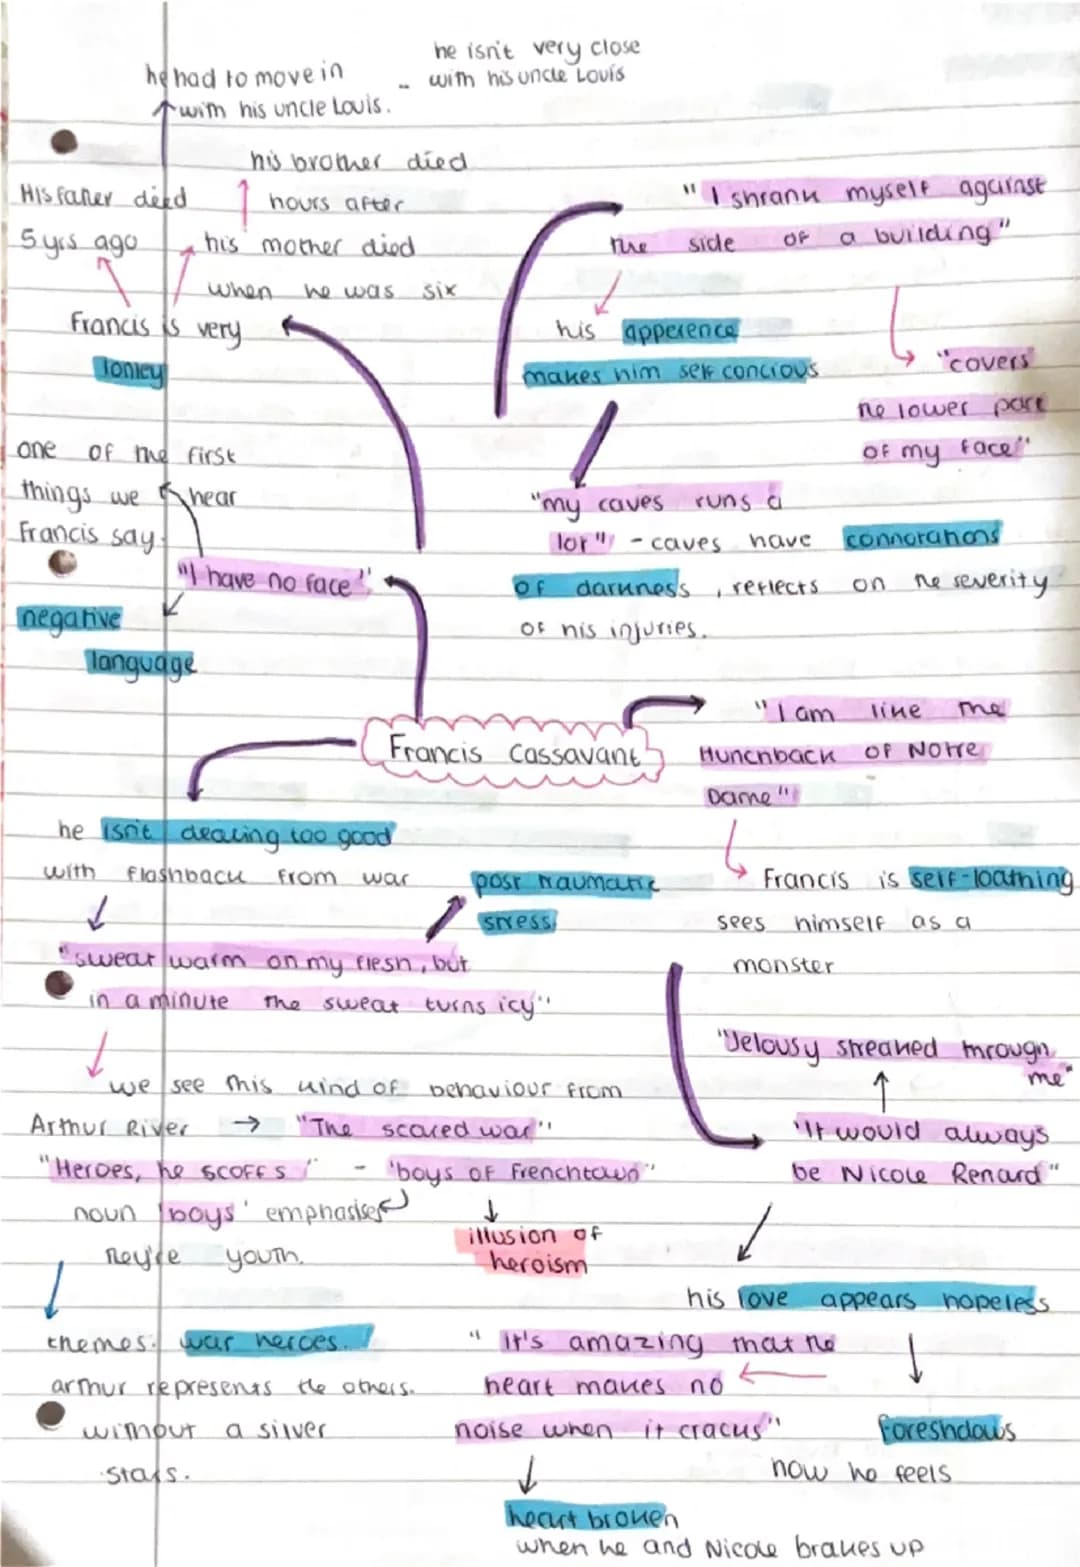 he isn't very close
with his uncle Louis
he had to move in
with his uncle Louis.
his brother died
hours after
his mother died
when he was six
His faher died
5 yrs ago
Francis is very
lonley
"I shrank myself against
the side of a building"
his apperence
makes him self concious
"covers
the lower part
of my face"
"my caves runs a
lot" - caves have connotations
of darkness, reflects on the severity
of his injuries.
one of the first
things we hear
Francis say
"I have no face"
negative
language
Francis Cassavant
"I am like the
Hunchback of Notre
Dame"
Francis is self-loathing
sees himself as a
monster
he isn't dealing too good
with flashback from war
post traumatic
stress
"sweat warm on my flesh, but
in a minute the sweat turns icy"
we see this kind of behaviour from
Arthur River → "The scared war"
"Heroes, he scoffs" - 'boys of Frenchtown"
noun 'boys' emphasises
they're youth.
illusion of
heroism
themes: war heroes.
arthur represents the others.
without a silver
stars.
"Jelousy streaked through
me"
'It would always
be Nicole Renard"
his love appears hopeless
foreshdows
how he feels
"It's amazing that the
heart makes no
noise when it cracks"
heart broken
when he and Nicole brakes up